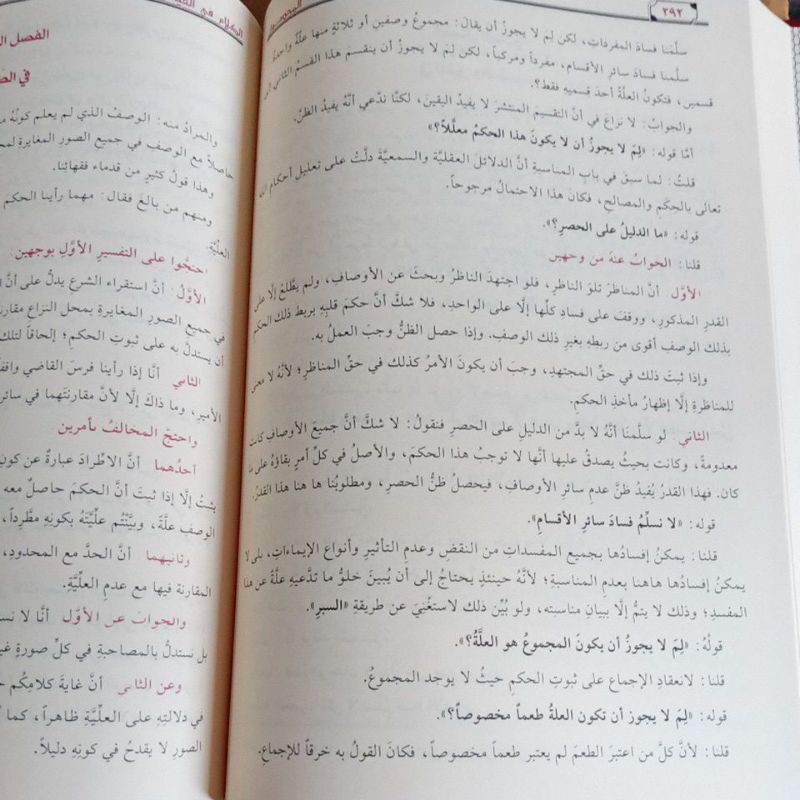 ٢٩٢
المحصول
سلّمنا فسادَ المفرداتِ، لكن لِمَ لا يجوزُ أن يقالَ: مجموعُ وصفينِ أو ثلاثةٍ منها علّةٌ واحدةٌ
سلّمنا فسادَ سائرِ الأقسامِ، مفرداً ومركباً، لكن لِمَ لا يجوزُ أن ينقسمَ هذا القسمُ الثاني إلى
قسمين، فتكونُ العلّةُ أحدَ قسميهِ فقط؟.
والجوابُ: لا نزاعَ في أنَّ التقسيمَ المنتشرَ لا يفيدُ اليقينَ، لكنّا ندّعي أنَّهُ يفيدُ الظنَّ.
أمّا قوله: «لِمَ لا يجوزُ أن لا يكونَ هذا الحكمُ معلّلاً؟»
قلتُ: لما سبقَ في بابِ المناسبةِ أنَّ الدلائلَ العقليَّةَ والسمعيَّةَ دلّتْ على تعليلِ أحكامِ الله
تعالى بالحِكَمِ والمصالحِ، فكانَ هذا الاحتمالُ مرجوحاً.
قوله: «ما الدليلُ على الحصرِ؟».
قلنا: الجوابُ عنهُ من وجهين
الأوّل أنَّ المناظرَ تلوَ الناظرِ، فلو اجتهدَ الناظرُ وبحثَ عن الأوصافِ، ولم يطّلعْ إلّا على
القدرِ المذكورِ، ووقفَ على فسادِ كلّها إلّا على الواحدِ، فلا شكَّ أنَّ حكمَ قلبِهِ بربطِ ذلك الحكمِ
بذلك الوصفِ أقوى من ربطِهِ بغيرِ ذلك الوصفِ. وإذا حصل الظنُّ وجبَ العملُ به.
وإذا ثبتَ ذلك في حقِّ المجتهدِ، وجبَ أن يكونَ الأمرُ كذلك في حقِّ المناظرِ؛ لأنَّهُ لا معنى
للمناظرةِ إلّا إظهارُ مأخذِ الحكمِ.
الثاني لو سلَّمنَا أنَّهُ لا بدَّ من الدليلِ على الحصرِ فنقولُ: لا شكَّ أنَّ جميعَ الأوصافِ كانت
معدومةً، وكانت بحيثُ يصدقُ عليها أنَّها لا توجبُ هذا الحكمَ، والأصلُ في كلِّ أمرٍ بقاؤهُ على ما
كان. فهذا القدرُ يُفيدُ ظنَّ عدمِ سائرِ الأوصافِ، فيحصلُ ظنُّ الحصرِ، ومطلوبُنا ها هنا هذا القدرُ.
قوله: «لا نسلّمُ فسادَ سائرِ الأقسامِ».
قلنا: يمكنُ إفسادُها بجميعِ المفسداتِ من النقضِ وعدمِ التأثيرِ وأنواعِ الإيماءاتِ، بلى لا
يمكنُ إفسادُها هاهنا بعدمِ المناسبةِ؛ لأنَّهُ حينئذٍ يحتاجُ إلى أن يُبينَ خلوَّ ما تدَّعيهِ علّةً عن هذا
المفسدِ؛ وذلك لا يتمُّ إلّا ببيانِ مناسبته، ولو بُيّنَ ذلك لاستغْنيَ عن طريقةِ «السبرِ».
قولُهُ: «لِمَ لا يجوزُ أن يكونَ المجموعُ هو العلّةُ؟».
قلنا: لانعقادِ الإجماعِ على ثبوتِ الحكمِ حيثُ لا يوجد المجموعُ.
قوله: «لِمَ لا يجوز أن تكون العلةُ طعماً مخصوصاً؟».
قلنا: لأنَّ كلَّ من اعتبرَ الطعمَ لم يعتبر طعماً مخصوصاً، فكانَ القولُ به خرقاً للإجماعِ.
الكلام في القياس
الفصل
في
والمرادُ منه: الوصفُ الذي لم يعلم كونُهُ
حاصلاً مع الوصفِ في جميعِ الصورِ المغايرةِ
وهذا قولُ كثيرٍ من قدماء فقهائنا.
ومنهم من بالغَ فقال: مهما رأينا الحكمَ
العلّيّةُ.
احتجُّوا على التفسيرِ الأوّلِ بوجهين
الأوّلُ: أنَّ استقراءَ الشرعِ يدلُّ على أنَّ
في جميعِ الصورِ المغايرةِ بمحلِ النزاعِ
أن يستدلَّ به على ثبوتِ الحكمِ؛ إلحاقاً لتلك
الثاني أنَّا إذا رأينا فرسَ القاضي
الأميرِ، وما ذاكَ إلّا لأنَّ مقارنتَهما في سائرِ
واحتجَّ المخالفُ بأمرين
أحدُهما أنَّ الاطّرادَ عبارةٌ عن كونِ
يثبتُ إلّا إذا ثبتَ أنَّ الحكمَ حاصلٌ معه
الوصفِ علّةً، وبيَّنْتُم علّيَّتَهُ بكونِهِ مطَّرداً،
وثانيهما أنَّ الحدَّ مع المحدودِ،
المقارنة فيها مع عدمِ العلّيّةِ.
والجوابُ عن الأوّلِ أنَّا لا
بل نستدلُّ بالمصاحبةِ في كلِّ صورةٍ
وعن الثاني أنَّ غايةَ كلامِكُم
في دلالتهِ على العلّيّةِ ظاهراً، كما
الصورِ لا يقدحُ في كونِهِ دليلاً.